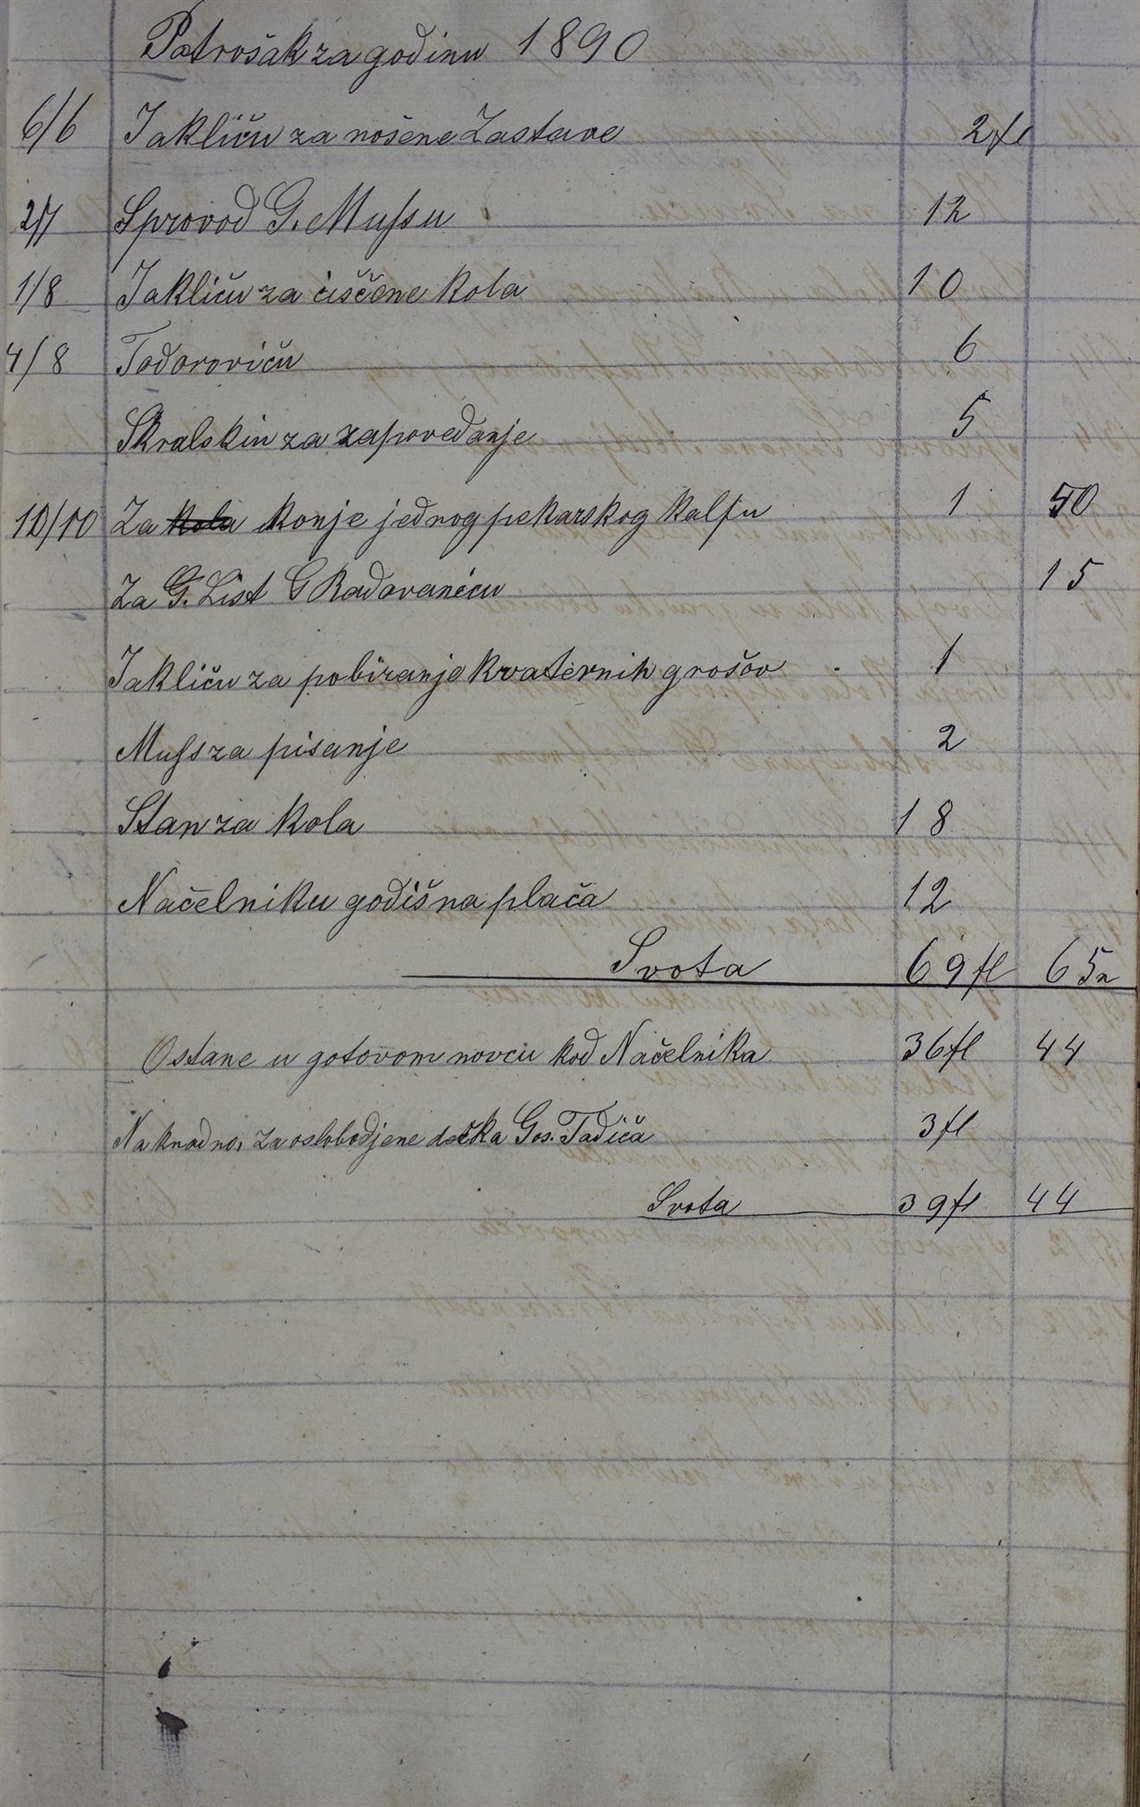 Potrošak za godinu 1890
6/6 Jakliču za nošene Zastave 2 fl
2/7 Sprovod G. Muhsu 12
1/8 Jakliču za čiščene kola 10
4/8 Todoroviču 6
Skralskin za zapovedanje 5
10/10 Za kola konje jednog pekarskog kalfu 1 50
Za G. List G Radovaniću 15
Jakliču za pobiranje kvaternih grošov 1
Muhs za pisanje 2
Stan za kola 18
Načelniku godišna plača 12
Svota 69 fl 65
Ostane u gotovom novcu kod Načelnika 36 fl 44
Naknadno, za oslobodjene dečka Gos. Tadiča 3 fl
Svota 39 fl 44